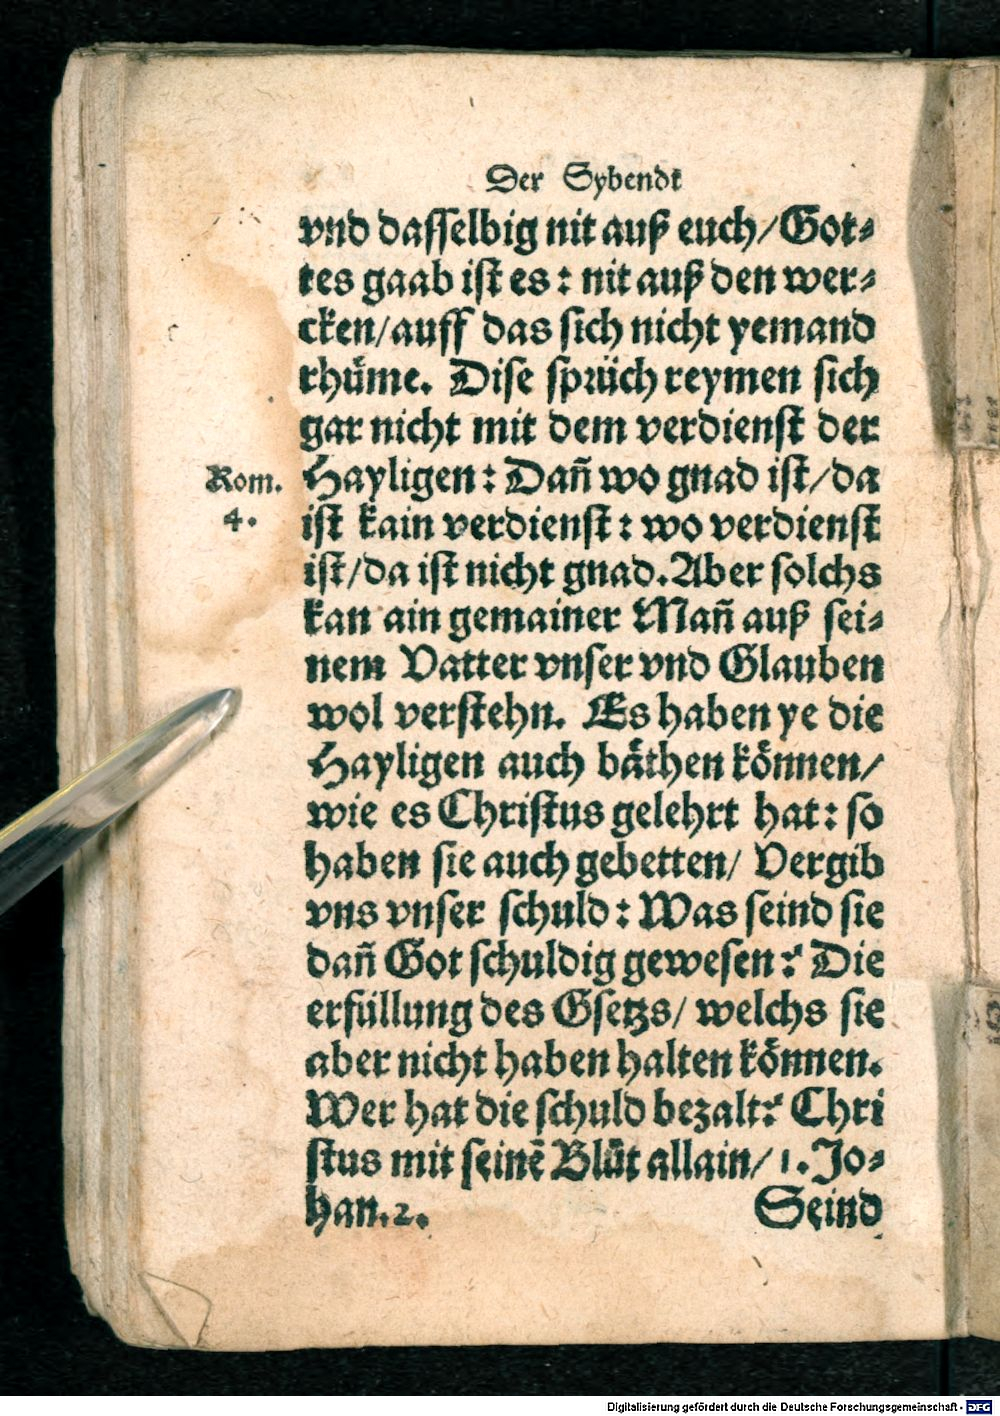 Der Sybendt
vnd dasselbig nit auß euch/Got⸗
tes gaab ist es: nit auß den wer⸗
cken/auff das sich nicht yemand
rhüme. Dise sprüch reymen sich
gar nicht mit dem verdienst der
Rom. Hayligen: Dañ wo gnad ist/da
4. ist kain verdienst: wo verdienst
ist/da ist nicht gnad. Aber solchs
kan ain gemainer Mañ auß sei⸗
nem Vatter vnser vnd Glauben
wol verstehn. Es haben ye die
Hayligen auch bäthen können/
wie es Christus gelehrt hat: so
haben sie auch gebetten/ Vergib
vns vnser schuld: Was seind sie
dañ Got schuldig gewesen? Die
erfüllung des Gsetzs/ welchs sie
aber nicht haben halten können.
Wer hat die schuld bezalt? Chri
stus mit seinē Blůt allain/ 1. Jo⸗
han. 2. Seind
Digitalisierung gefördert durch die Deutsche Forschungsgemeinschaft - DFG